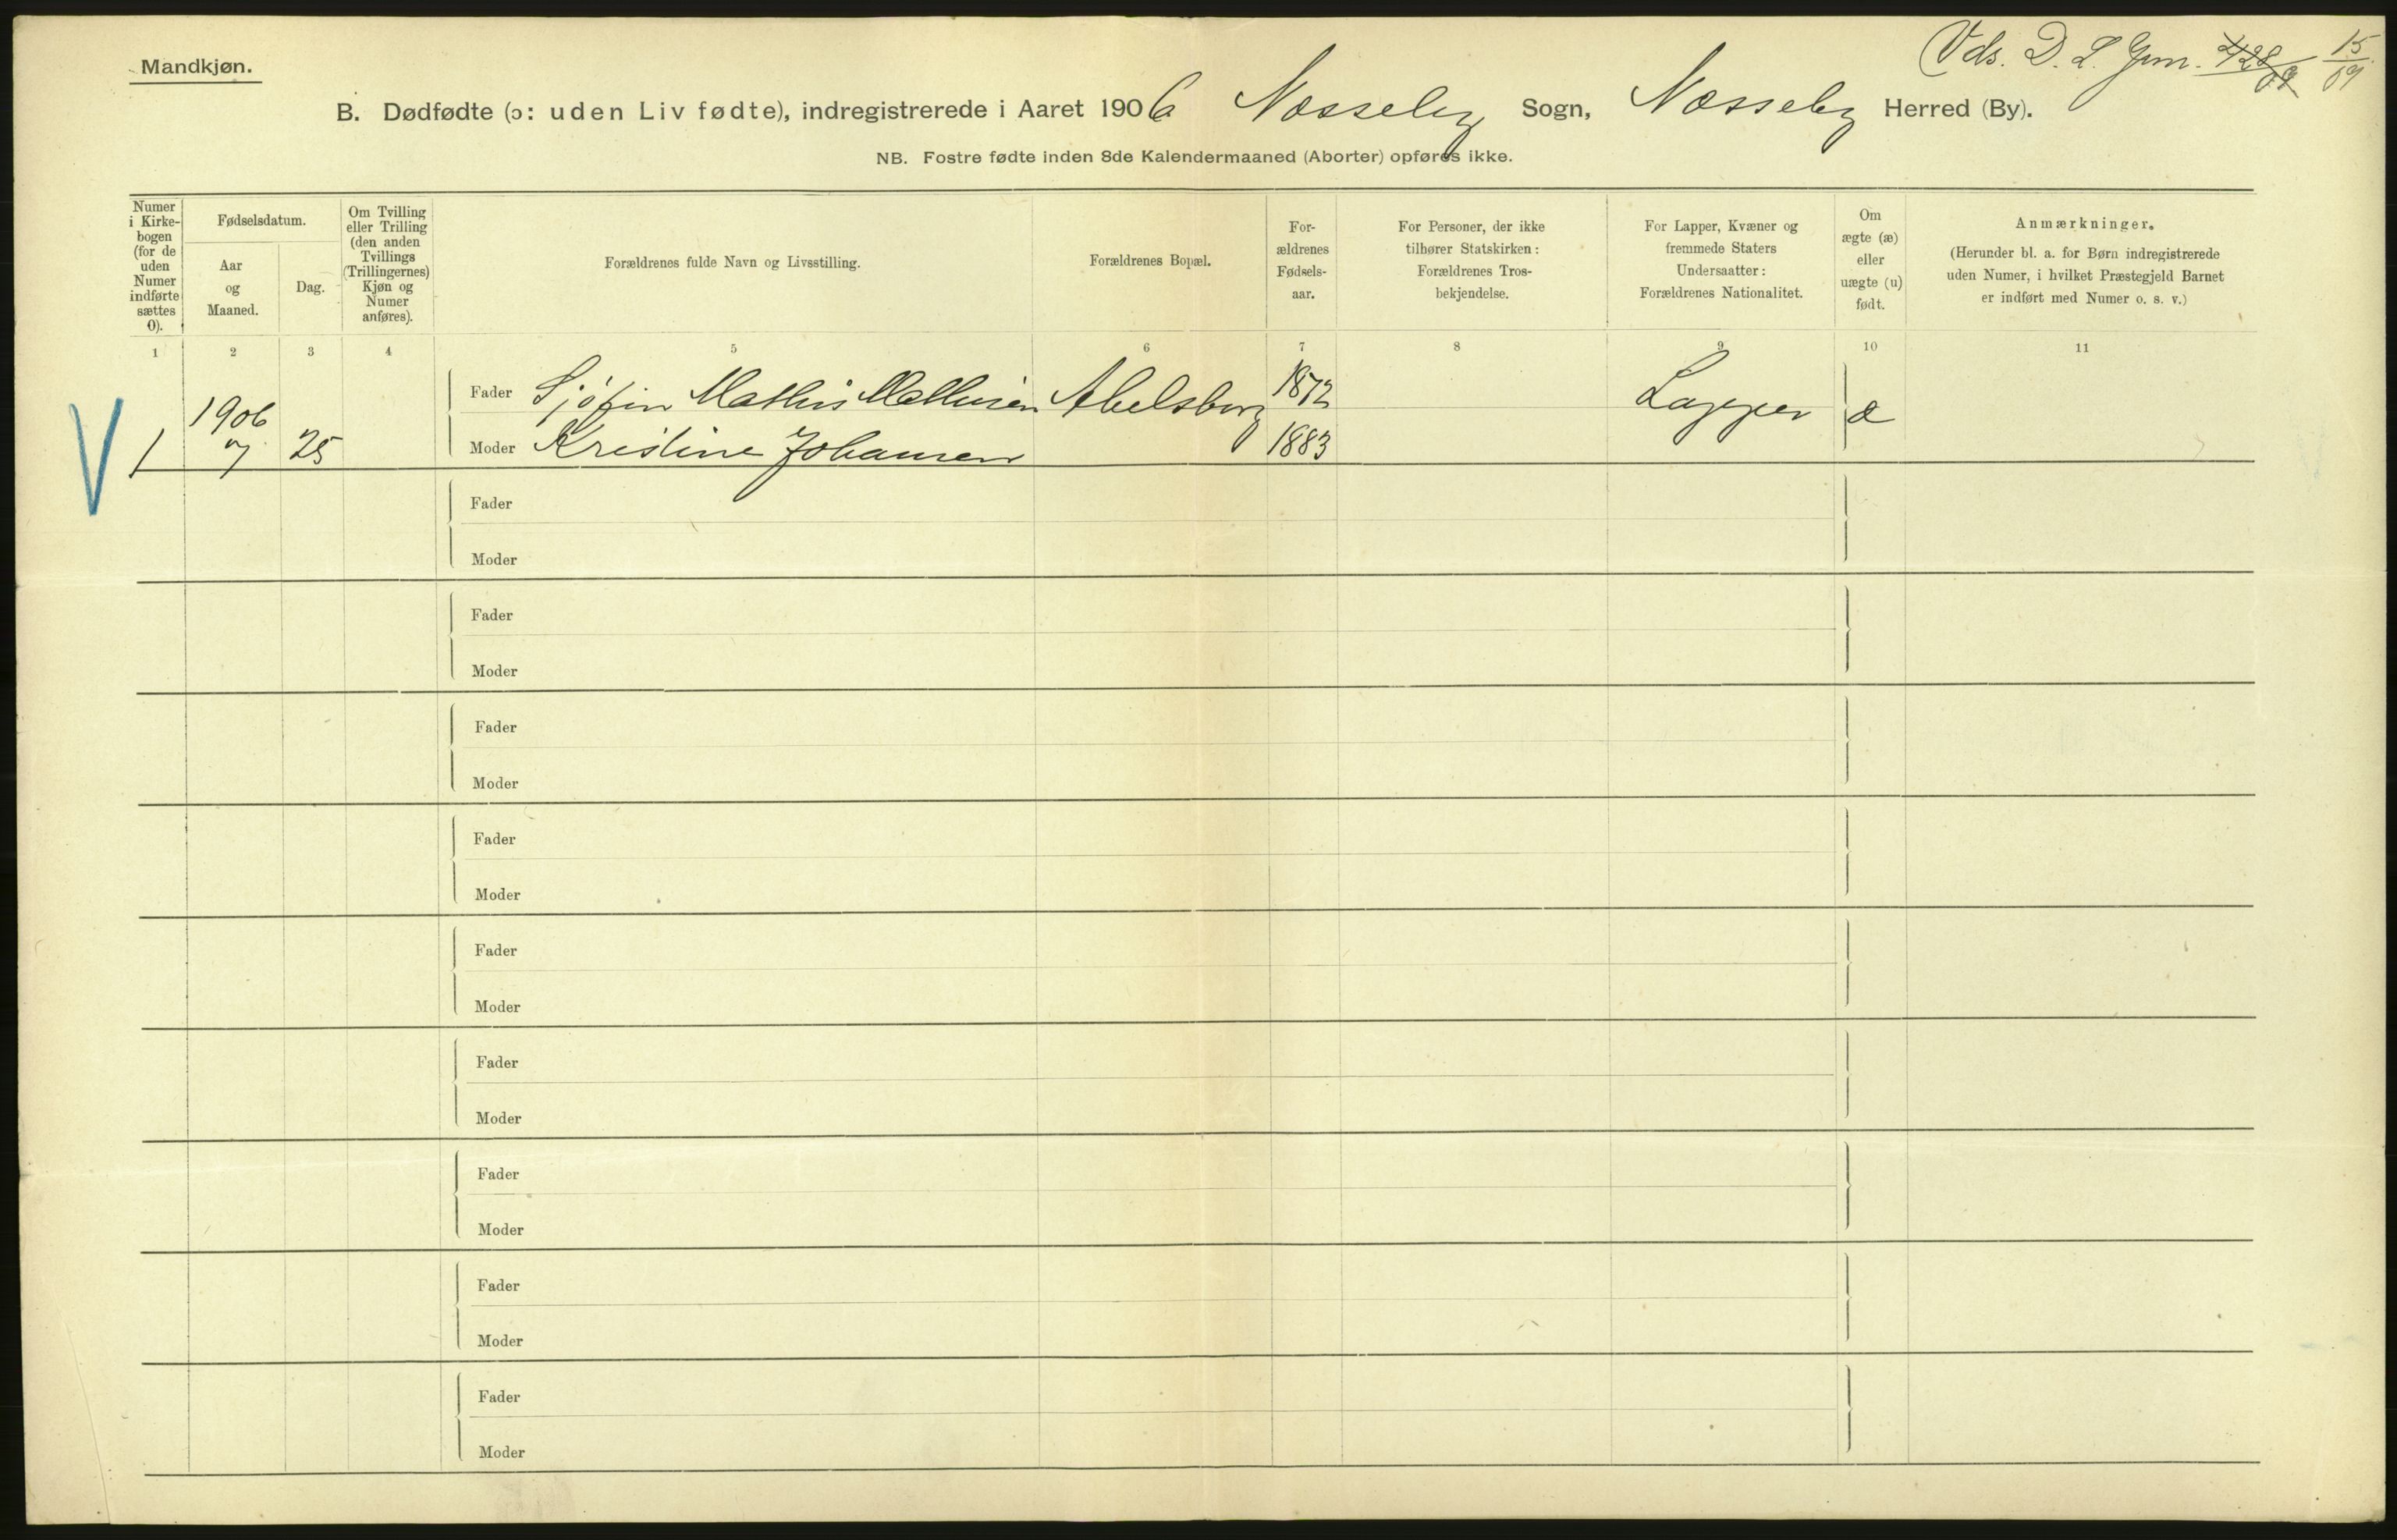 Mandkjøn.
Vds. D. L. Jrn. 15/09
B. Dødfødte (ɔ: uden Liv fødte), indregistrerede i Aaret 1906 Næsseby Sogn, Næsseby Herred (By).
NB. Fostre fødte inden 8de Kalendermaaned (Aborter) opføres ikke.
Numer
i Kirke-
bogen
(for de
uden
Numer
indførte
sættes
0).
Fødselsdatum.
Aar
og
Maaned.
Dag.
Om Tvilling
eller Trilling
(den anden
Tvillings
(Trillingernes)
Kjøn og
Numer
anføres).
Forældrenes fulde Navn og Livsstilling.
Forældrenes Bopæl.
For-
ældrenes
Fødsels-
aar.
For Personer, der ikke
tilhører Statskirken:
Forældrenes Tros-
bekjendelse.
For Lapper, Kvæner og
fremmede Staters
Undersaatter:
Forældrenes Nationalitet.
Om
ægte (æ)
eller
uægte (u)
født.
Anmærkninger.
(Herunder bl. a. for Børn indregistrerede
uden Numer, i hvilket Præstegjeld Barnet
er indført med Numer o. s. v.)
1 2 3 4 5 6 7 8 9 10 11
Fader Mathis Mathisen Abelsborg 1872 Lapper æ
V 1 1906 7 25 Moder Kristine Johansen 1883
Fader
Moder
Fader
Moder
Fader
Moder
Fader
Moder
Fader
Moder
Fader
Moder
Fader
Moder
Fader
Moder
Fader
Moder